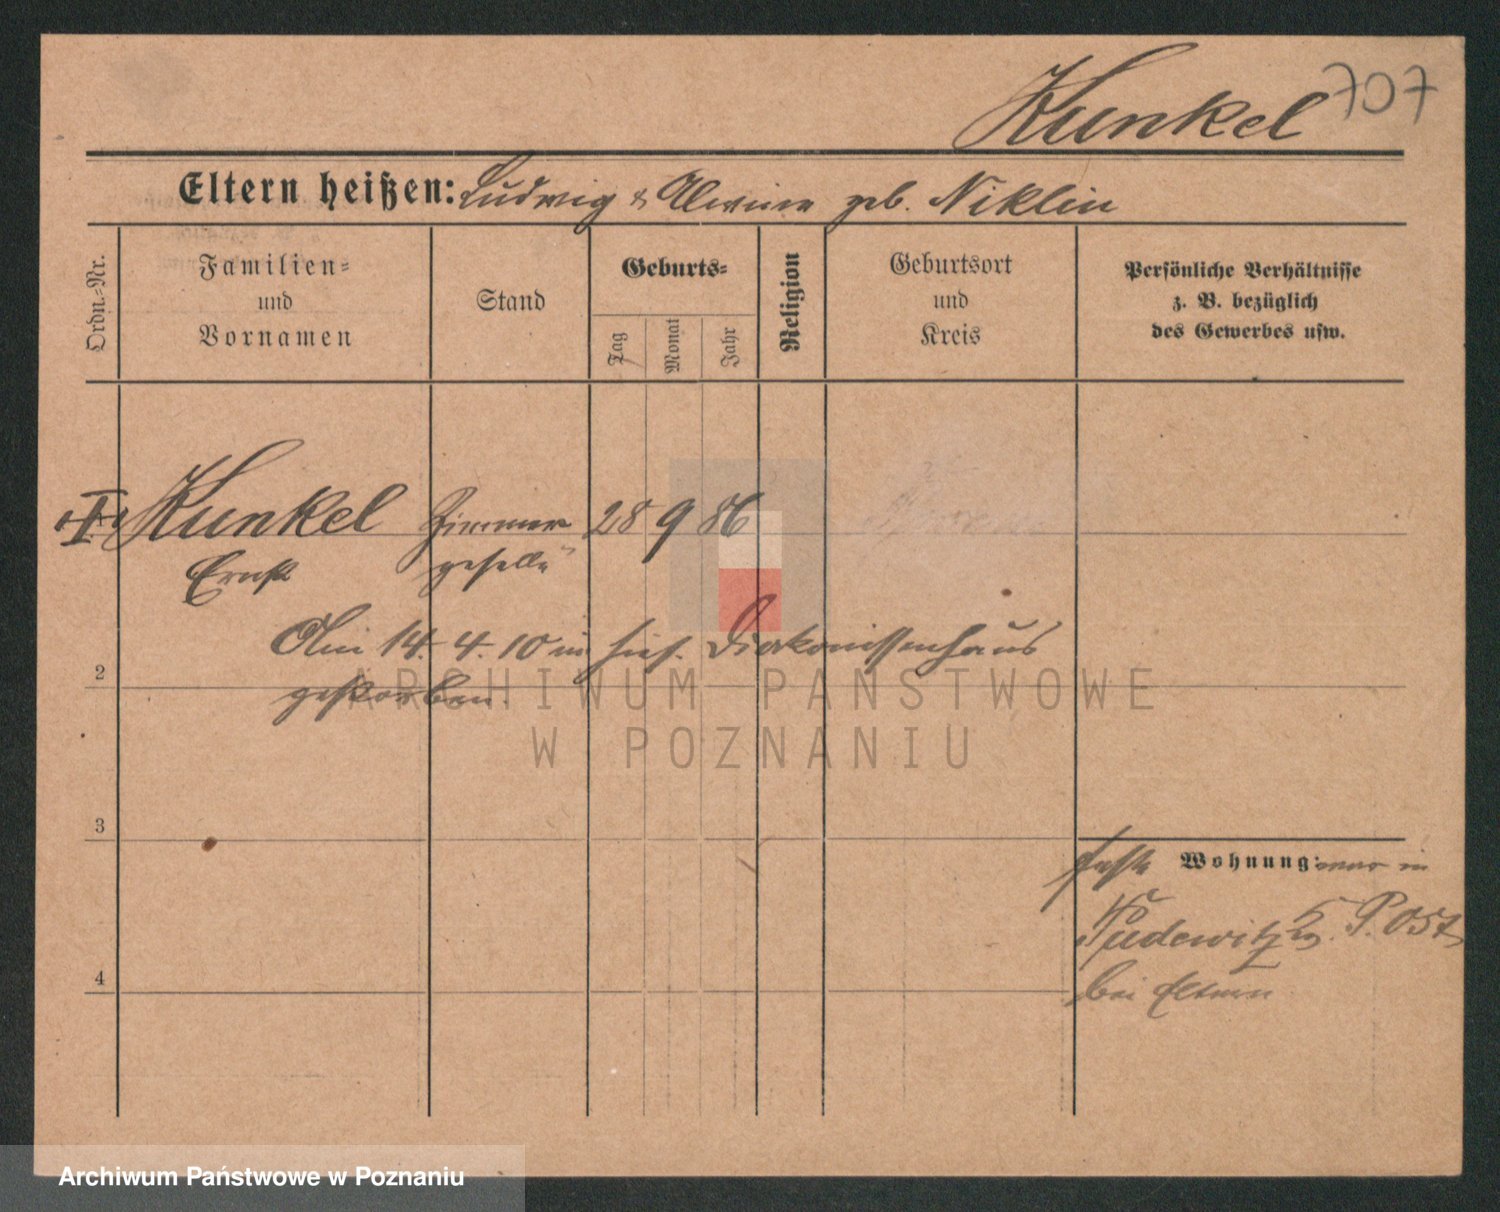 Kunkel 707
Eltern heißen: Ludwig & Alwine geb. Niklin
Ordn.-Nr.
Familien-
und
Vornamen
Stand
Geburts-
Tag
Monat
Jahr
Religion
Geburtsort
und
Kreis
Persönliche Verhältnisse
z. B. bezüglich
des Gewerbes usw.
I Kunkel Zimmer 28 9 86
Ernst geselle
Am 14. 4. 10 im hies. Diakonissenhaus
2
gestorben.
ARCHIWUM PAŃSTWOWE
W POZNANIU
3
feste Wohnung: war in
Pudewitz P. Ost
4
bei Eltern
Archiwum Państwowe w Poznaniu